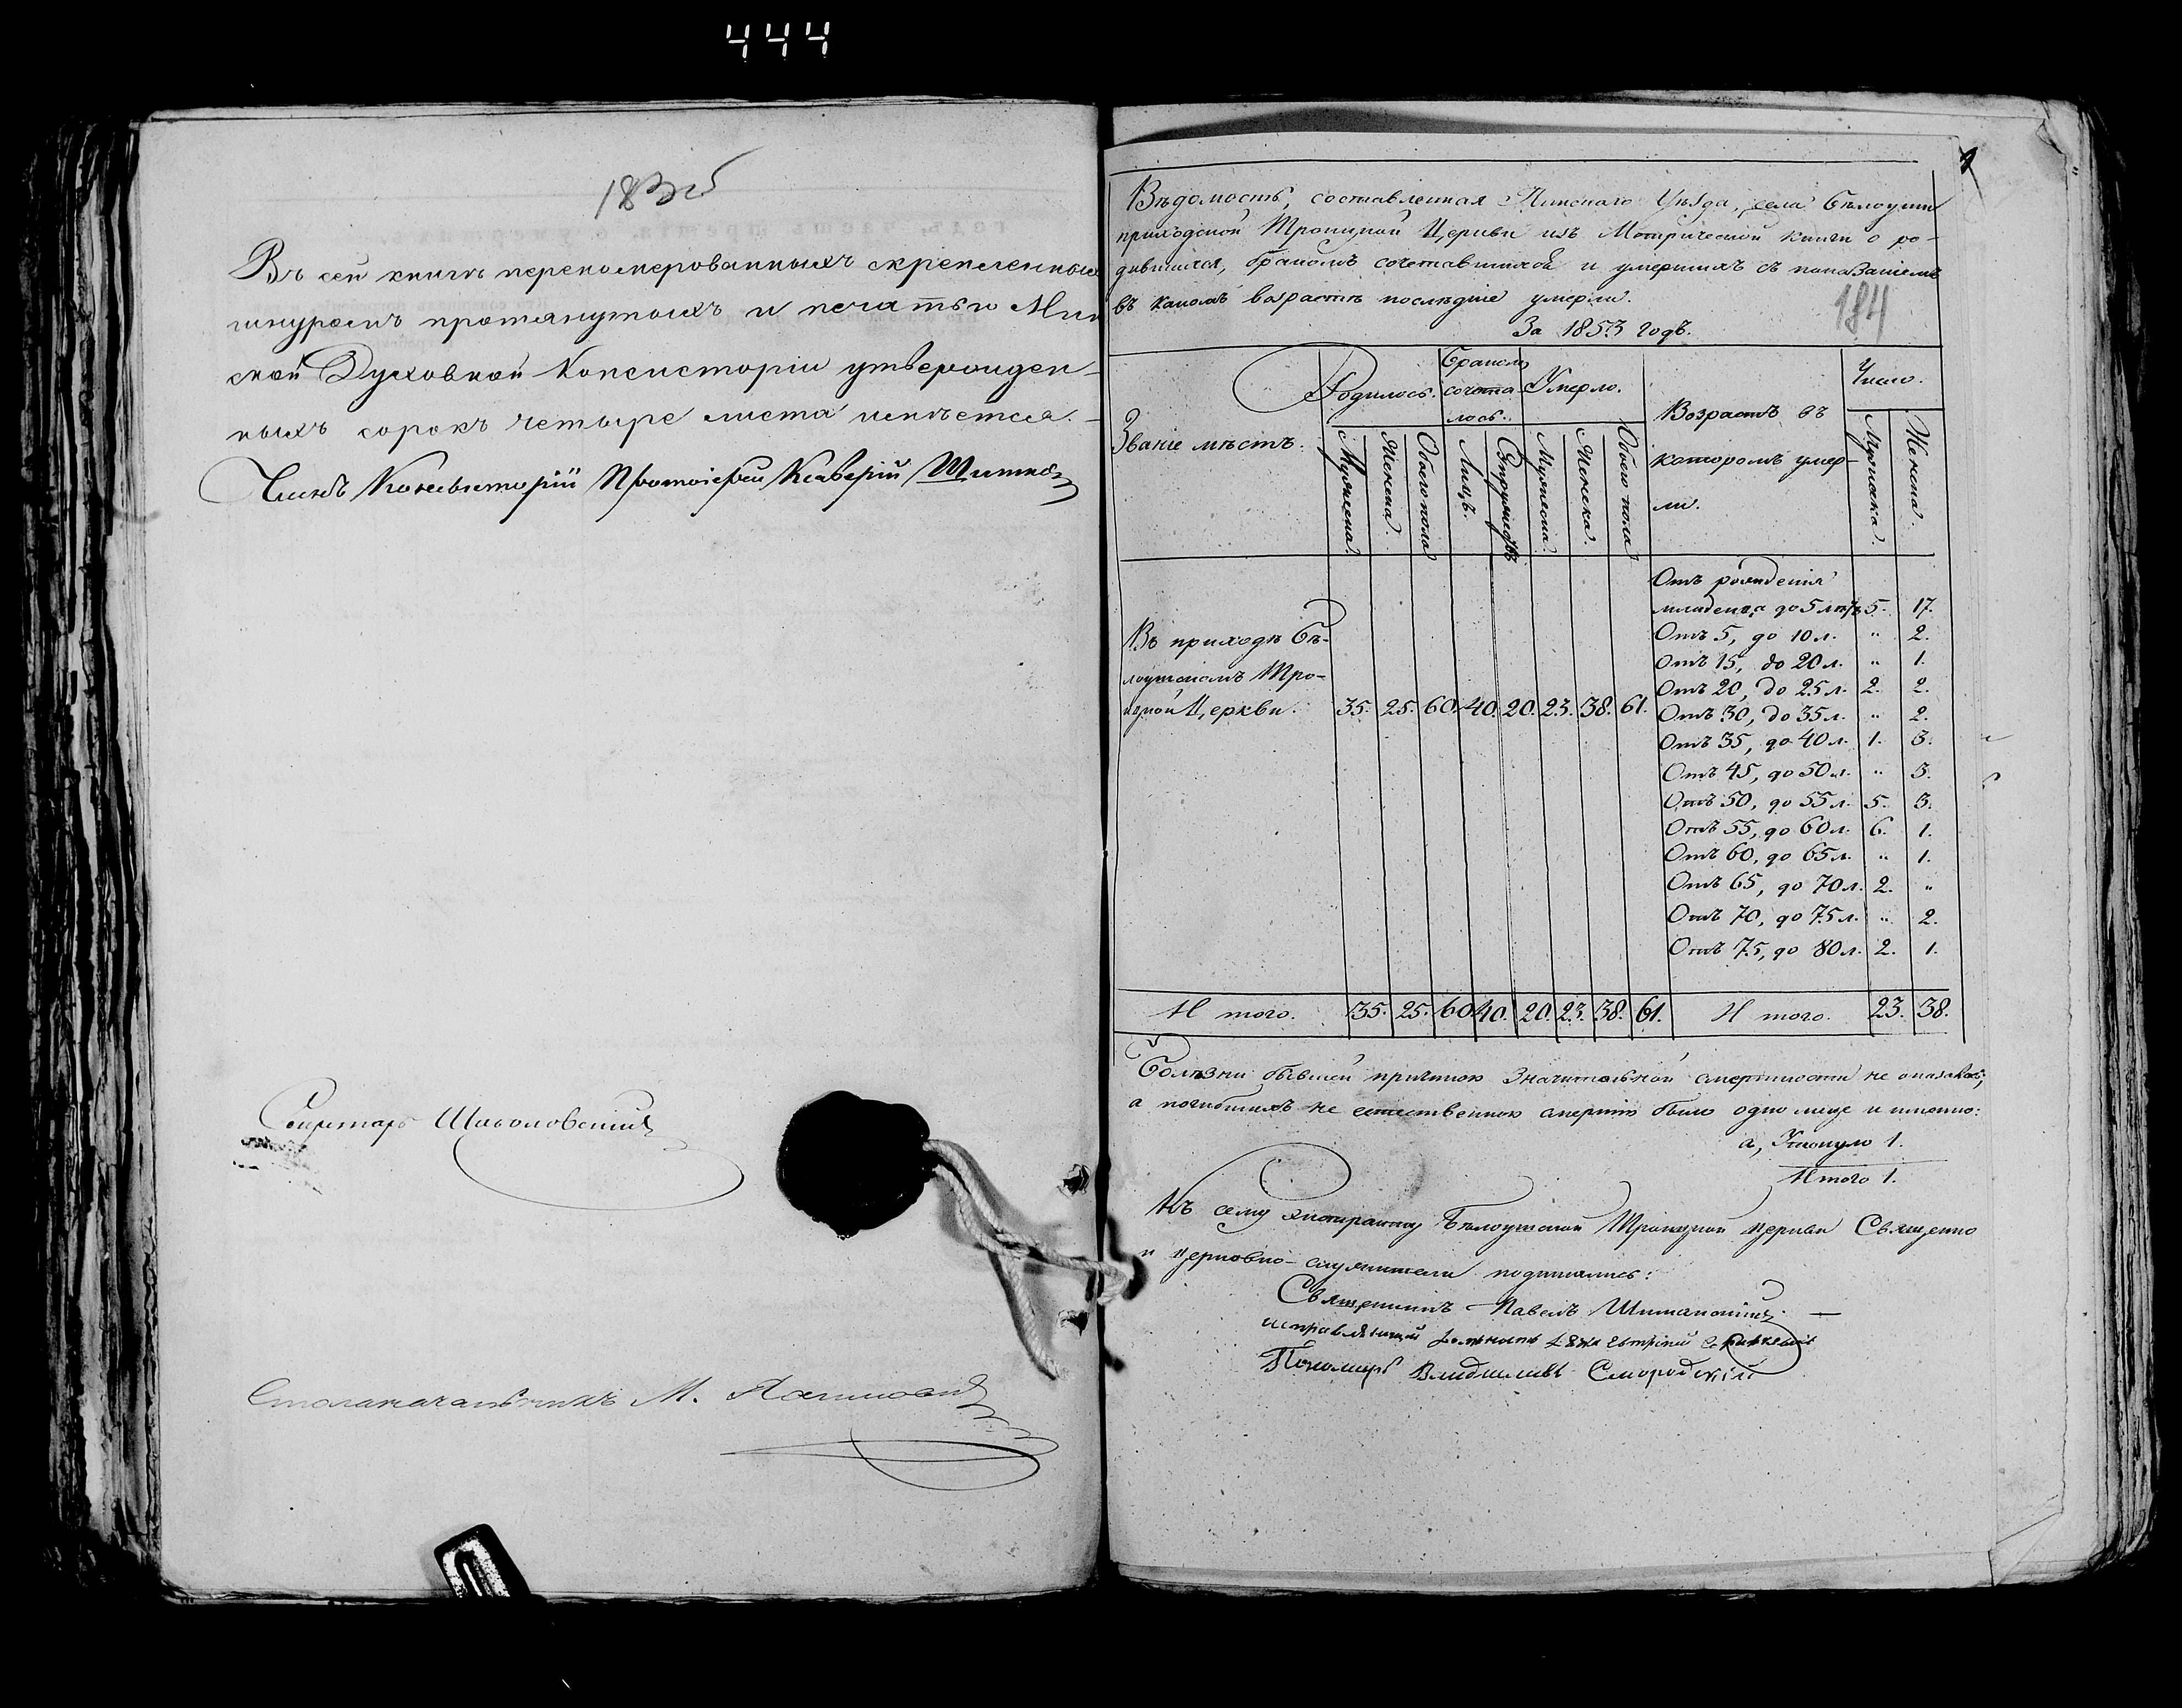 444
Въ сей книгѣ перенумерованныхъ скрепленныхъ
шнуромъ протянутыхъ и печатью Мин
ской Духовной Консисторіи утвержден-
ныхъ сорокъ четыре листа имѣется.
Членъ Консисторіи Протоіерей Ксаверій
Секретарь
Столоначальникъ М.
184
Вѣдомость, составленная Пинскаго Уѣзда, села Бѣлоуши
приходской Троицкой Церкви изъ Метрической книги о ро-
дившихся, бракомъ сочетавшихся и умершихъ съ показаніемъ
въ какомъ возрастѣ послѣдніе умерли.
За 1853 годъ.
Званіе мѣстъ. Родилось. Бракомъ сочета-лось. Умерло. Возрастъ въ которомъ умер-ли. Число.
Мужеска. Женска. Обоего пола Лицъ. Супружествъ Мужеска. Женска. Обоего пола Мужска. Женска.
Въ приходѣ Бѣ-
лоушскомъ Тро-
ицкой Церкви. 35. 25. 60. 40. 20. 23. 38. 61.
Отъ рожденія
младенца до 5 лѣтъ 5. 17.
Отъ 5, до 10 л. " 2.
Отъ 15, до 20 л. " 1.
Отъ 20, до 25 л. 2. 2.
Отъ 30, до 35 л. " 2.
Отъ 35, до 40 л. 1. 3.
Отъ 45, до 50 л. " 3.
Отъ 50, до 55 л. 5. 3.
Отъ 55, до 60 л. 6. 1.
Отъ 60, до 65 л. " 1.
Отъ 65, до 70 л. 2. "
Отъ 70, до 75 л. " 2.
Отъ 75, до 80 л. 2. 1.
И того. 35. 25. 60 40. 20. 23. 38. 61. И того. 23. 38.
Болѣзни бывшей причиною значительной смертности не оказалось,
а погибшихъ не естественною смертію было одно лице и именно:
а, Утонуло 1.
Итого 1.
Къ сему экстракту Бѣлоушской Троицкой церкви Священно
и церковно-служители подписались:
Священникъ Павелъ
исправляющій должность
Пономарь Смородскій